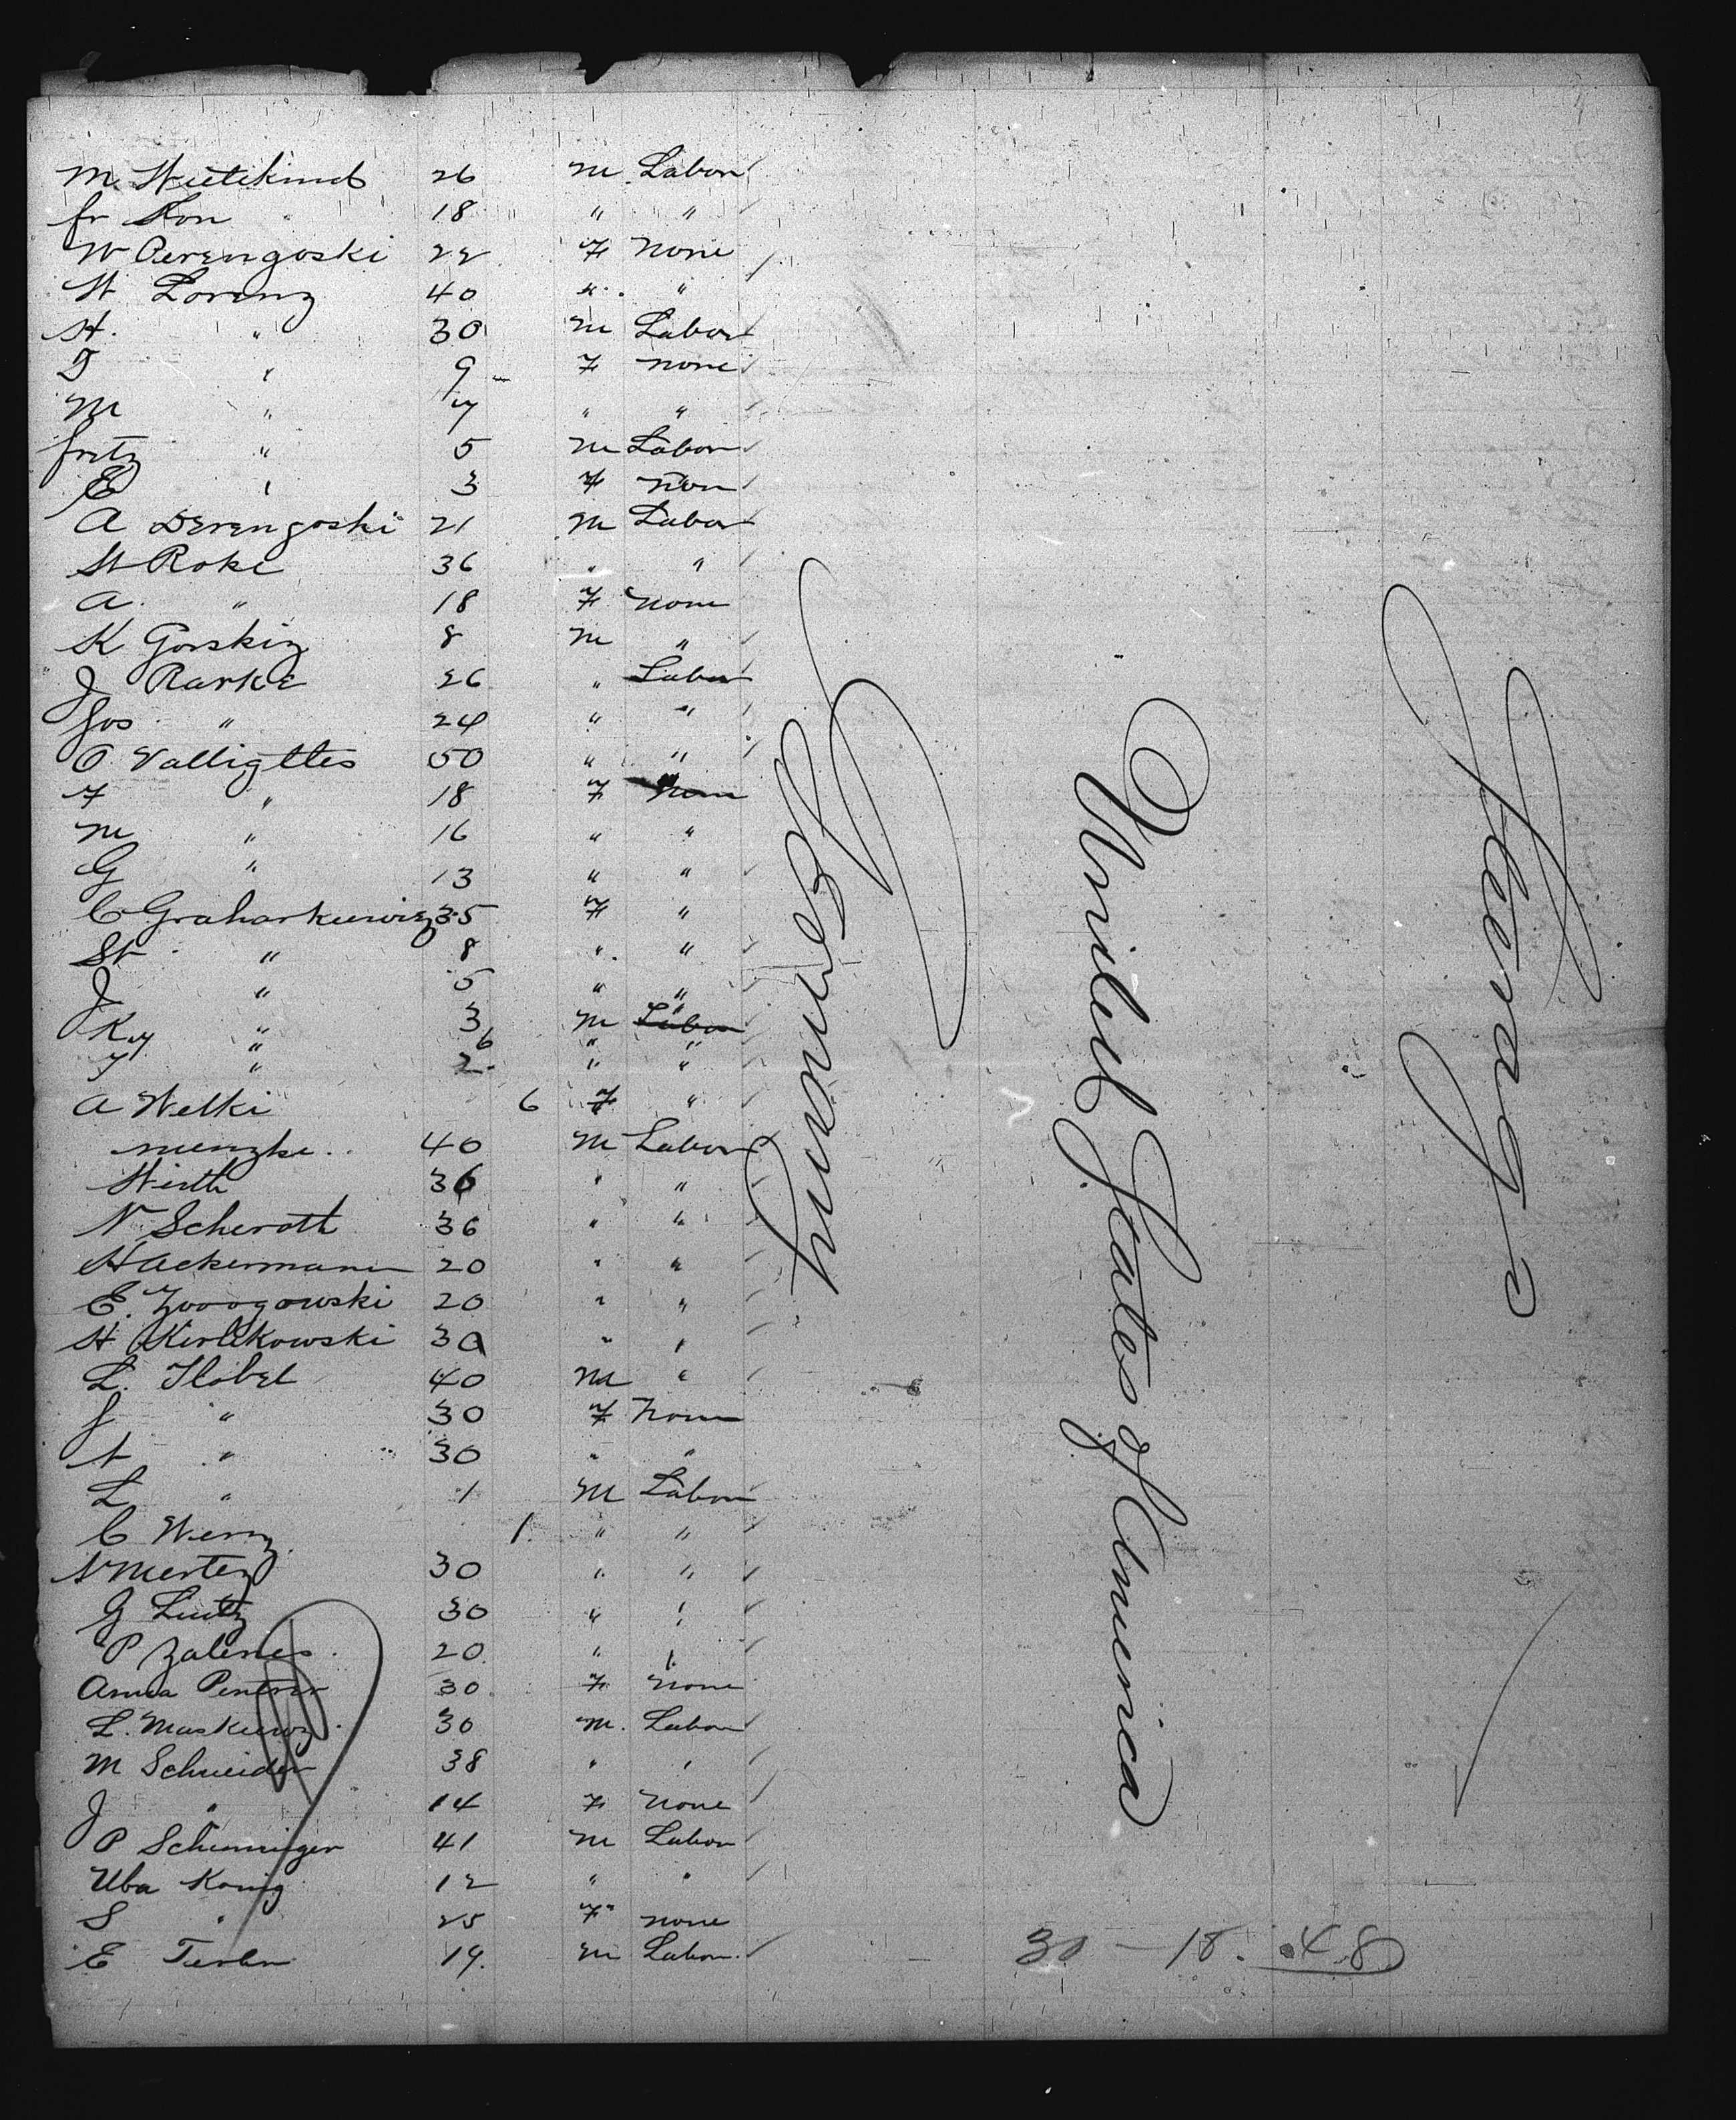 M. Wittekind 26 M. Labor
fr Kon 18 " "
W Derengoski 22 F None
W Lorenz 40 " "
H. " 30 M Labor
D " 9 F none
M " 7 " "
fritz " 5 M Labor
E " 3 F Non
A Derengoski 21 M Labor
St Roke 36 " "
A. " 18 F None
K Gorskiz 8 M "
J Rarke 26 " Labor
Jos " 24 " "
O Valligttes 50 " "
F " 18 F None
M " 16 " "
G " 13 " "
C Graharkiewiez 35 F "
St " 8 " "
J " 5 " "
K " 3 M Labor
" 6 " "
J " 2 " "
A Welki 6 F "
Menzke 40 M Labor
Wirth 36 " "
N Scheroth 36 " "
H Ackermann 20 " "
E. Zwoogowski 20 " "
H Kirlikowski 30 " "
L. Hobel 40 M "
J " 30 F None
A " 30 " "
L " 1 M Labor
C Wenz 1. " "
N Merten 30 " "
G Lintz 30 " "
P Zalenes 20 " "
Anna Pentner 30 F None
L. Maskiewz 30 M. Labor
M Schneider 38 " "
J " 14 F None
P Schenninger 41 M Labor
Uba Konig 12 " "
S " 25 F none
E 19. M Labor
Germany
United States of America
Steerage
30 – 18. 48